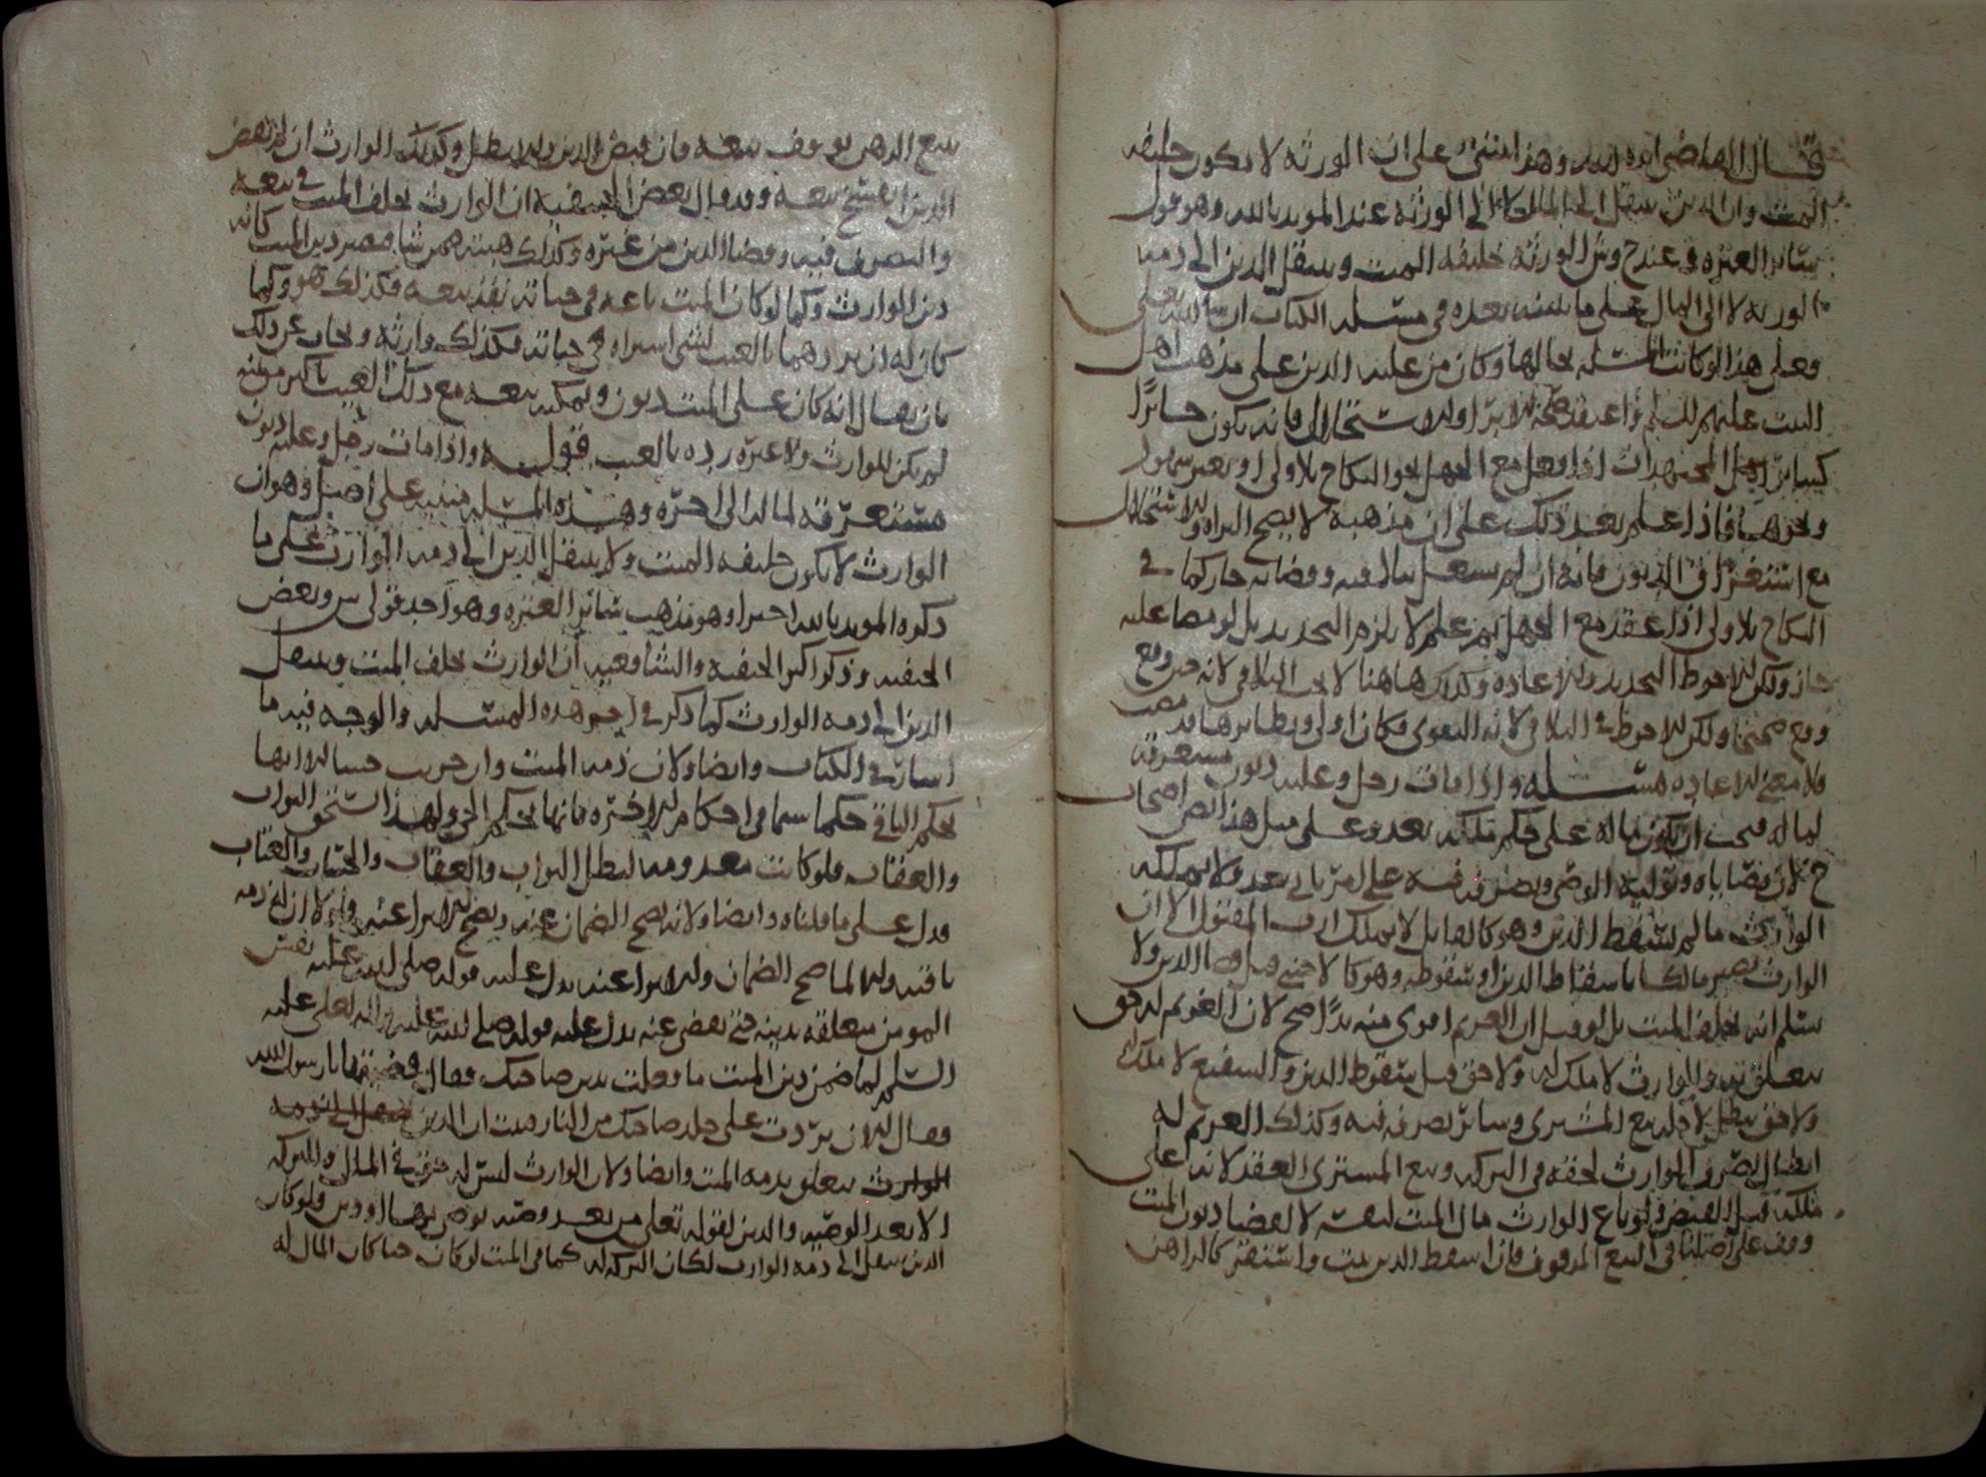 قال القاضي ايده الله وهذا انبنى على ان الورثة لا يكون خليفة
الميت وان الدين ينتقل الى الورثة عند المويد بالله وهو قول
سائر العترة وعند ح وش الورثة خليفة الميت وينتقل الدين الى ذمة
الورثة لا الى المال على ما نبينه بعده في مسئلة الكتاب ان شا الله تعلى
فعلى هذا لو كانت المسئلة بحالها وكان من عليه الدين على مذهب اهل
البيت عليهم السلم واعتقد صحة الابرا والاستحلال فانه يكون جائزا
كسائر المجتهدات اذا فعل مع الجهل نحو النكاح بلا ولي او بغير شهود
ونحوهما فاذا علم بعد ذلك على ان مذهبه لا يصح البراة والاستحلال
مع استغراق الديون فانه ان لم يشتغل وقضايه جاز كما في
النكاح بلا ولي اذا عقد مع الجهل ثم علم لا يلزم التجديد بل لو مضا عليه
جاز ولكن الاحوط التجديد والاعادة وكذلك هاهنا لا يجب التلافي لانه قد وقع
وقع صحيحا ولكن الاحوط في التلافي لانه التقوى فكان اولى ونظايرها قد مضت
فلا معنى للاعادة مسئلة واذا مات رجل وعليه ديون مستغرقة
لماله فيجب ان يكون ماله على حكم ملكه بعد وعلى مثل هذا نص اصحاب
ح لان قضاياه وتولية الوصي وتصرفه فيه على بعد ولا يملكه
الوارث ما لم يسقط الدين وهو كالقاتل لا يملك ارث المقتول الا ان
الوارث يصير مالكا باسقاط الدين او سقوطه وهو كالاجنبي قبل قضا الدين ولا
سلم انه يخلف الميت بل لو قيل ان الغريم اقوى منه يدا صح لان الغريم له حق
يتعلق به والوارث لا ملك له ولا حق قبل سقوط الدين والشفيع لا ملك له
ولا حق يبطل لاجله بيع المشتري وسائر تصرفه فيه وكذلك الغريم له
ابطال تصرف الوارث لحقه في التركة وبيع المشتري العقد لانه اعلى
ملكه قبل القبض ولو باع الوارث مال الميت لنفسه لا لقضا ديون الميت
وقف على اصلنا في البيع الموقوف فان اسقط الدين ثبت واستقر كالراهن
بيع الرهن يوقف بيعه فان قبض الدين والا بطل وكذلك الوارث ان لم يقض
الدين انفسخ بيعه وقد قال بعض الحنفية ان الوارث يخلف الميت في بيعه
والتصرف فيه وقضا الدين من غيره وكذلك هبته فمن شا يصير دين الميت كانه
دين الوارث وكما لو كان الميت باعه في حياته نفذ بيعه فكذلك هو وكما
كان له ان يرد هما بالعيب لشي اشتراه في حياته فكذلك وارثه ويجاب عن ذلك
بان يقال انه كان على الميت ديون ويمكنه بيعه مع ذلك العيب باكثر من ثمنه
لم يكن للوارث ولا غيره رده بالعيب قوله واذا مات رجل وعليه ديون
مستغرقة لماله الى اخره وهذه المسئلة مبنية على اصل وهو ان
الوارث لا يكون خليفة الميت ولا ينتقل الدين الى ذمة الوارث على ما
ذكره المويد بالله اخيرا وهو مذهب سائر العترة وهو احد قولي ش وبعض
الحنفية وذكر اكثر الحنفية والشافعية ان الوارث يخلف الميت وينتقل
الدين الى ذمة الوارث كما ذكر في اخر هذه المسئلة والوجه فيه ما
اشار في الكتاب وايضا ولان ذمة الميت وان خربت حسا الا انها
بحكم الباقي حكما سيما في احكام الاخرة فانها بحكم الحي ولهذا استحق الثواب
والعقاب فلو كانت معدومة لبطل الثواب والعقاب والحساب والعتاب
فدل على ما قلناه وايضا ولانه يصح الضمان عنه ويصح الابرا عنه ولولا ان الذمة
باقية والا لما صح الضمان والابرا عنه يدل عليه قوله صلى الله عليه نفس
المومن معلقة بدينه حتى يقضى عنه يدل عليه قوله صلى الله عليه واله لعلي عليه
السلم لما ضمن دين الميت ما فعلت بدين صاحبك فقال قضيتها يا رسول الله
فقال الان بردت على جلد صاحبك من النار فثبت ان الدين
الوارث يتعلق بذمة الميت وايضا ولان الوارث ليس له حق في المال والتركة
الا بعد الوصية والدين لقوله تعلى من بعد وصية يوصى بها او دين ولو كان
الدين ينتقل الى ذمة الوارث لكان التركة له كما في الميت لو كان حيا كان المال له